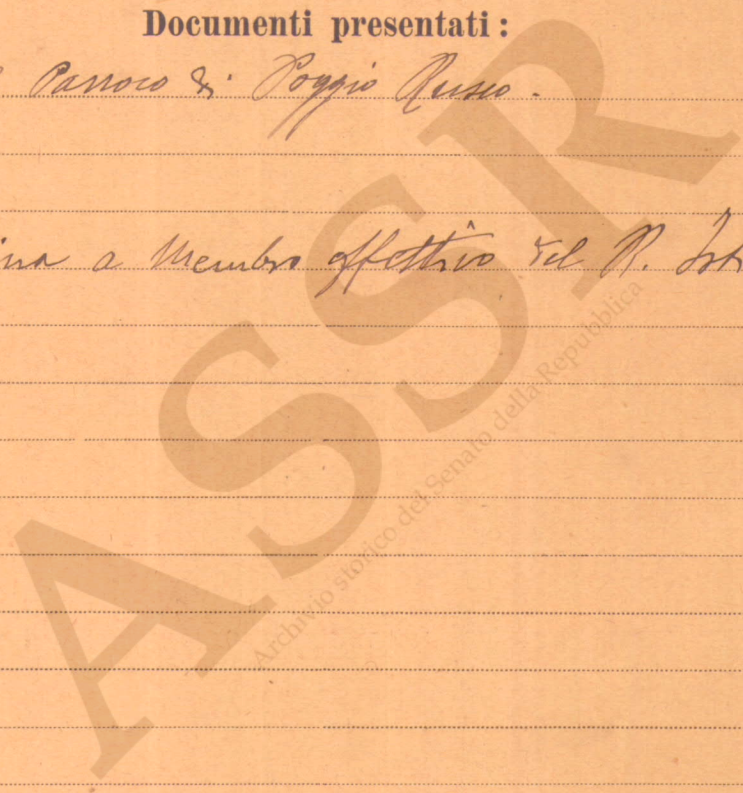 Documenti presentati:
Parroco di Poggio Rusco.
ina a Membro effettivo del R. Ist
ASSR
Archivio storico del Senato della Repubblica